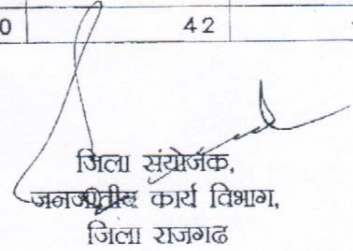 0 42
जिला संयोजक,
जनजातीय कार्य विभाग,
जिला राजगढ